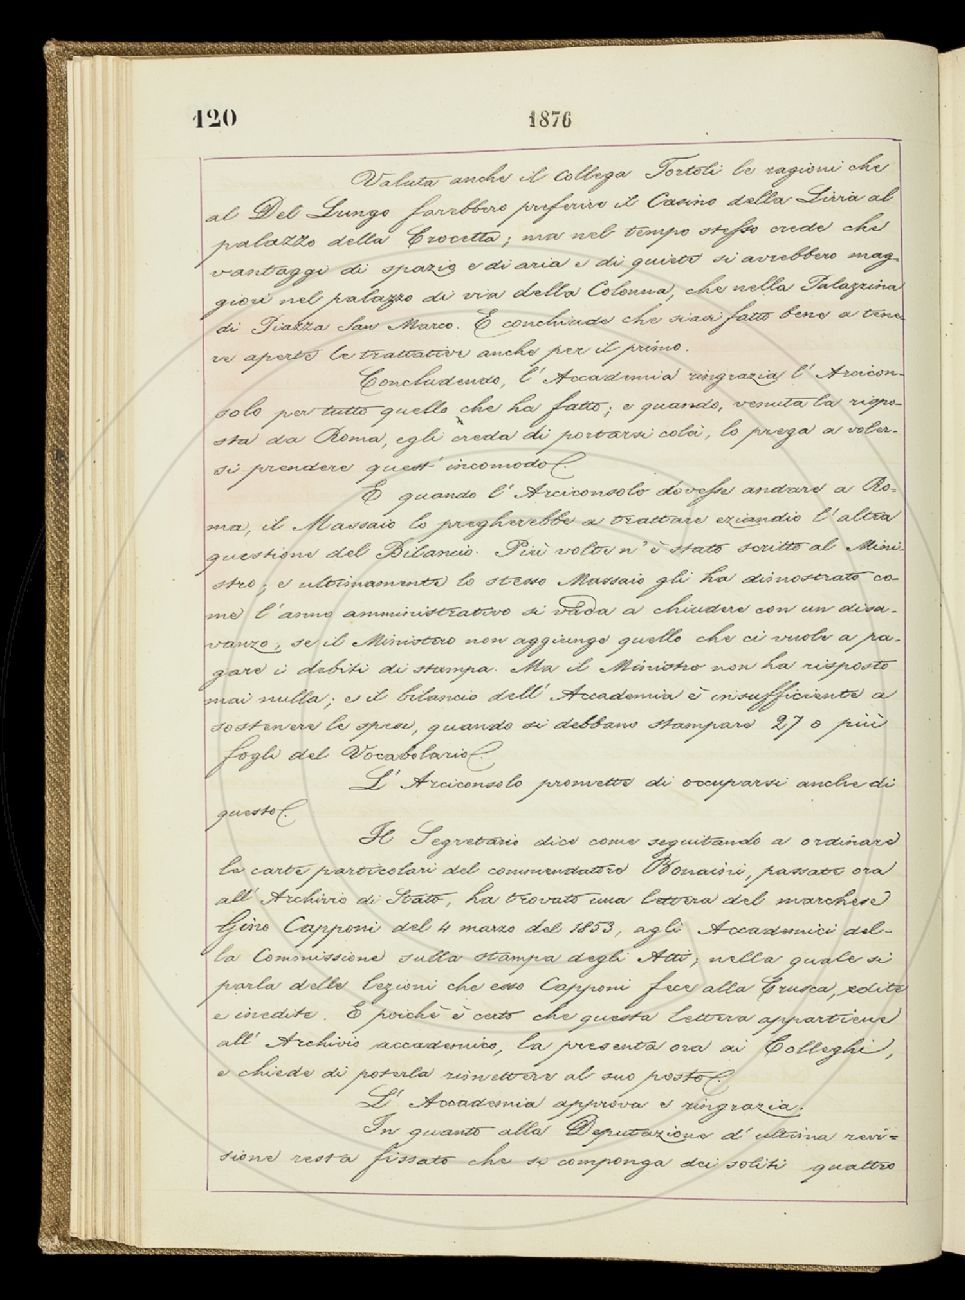 120
1876
Valuta anche il Collega Tortoli le ragioni che
al Del Lungo farebbero preferire il Casino della Livia al
palazzo della Crocetta; ma nel tempo stesso crede che
vantaggi di spazio e di aria e di quiete si avrebbero mag-
giori nel palazzo di via della Colonna, che nella Palazzina
di Piazza San Marco. E conchiude che siasi fatto bene a tene-
re aperte le trattative anche per il primo.
Concludendo, l'Accademia ringrazia l'Arcicon-
solo per tutto quello che ha fatto; e quando, venuta la rispo-
sta da Roma, egli creda di portarsi colà, lo prega a voler-
si prendere quest'incomodo.
E quando l'Arciconsolo dovesse andare a Ro-
ma, il Massaio lo pregherebbe a trattare eziandio l'altra
questione del Bilancio. Più volte n'è stato scritto al Mini-
stro; e ultimamente lo stesso Massaio gli ha dimostrato co-
me l'anno amministrativo si vada a chiudere con un disa-
vanzo, se il Ministero non aggiunge quello che ci vuole a pa-
gare i debiti di stampa. Ma il Ministro non ha risposto
mai nulla; e il bilancio dell'Accademia è insufficiente a
sostenere le spese, quando si debbano stampare 27 o più
fogli del Vocabolario.
L'Arciconsolo promette di occuparsi anche di
questo.
Il Segretario dice come seguitando a ordinare
le carte particolari del commendatore Bonaini, passate ora
all'Archivio di Stato, ha trovato una lettera del marchese
Gino Capponi del 4 marzo del 1853, agli Accademici del-
la Commissione sulla stampa degli Atti; nella quale si
parla delle lezioni che esso Capponi fece alla Crusca, edite
e inedite. E poichè è certo che questa lettera appartiene
all'Archivio accademico, la presenta ora ai Colleghi,
e chiede di poterla rimettere al suo posto.
L'Accademia approva e ringrazia.
In quanto alla Deputazione d'ultima revi=
sione resta fissato che si componga dei soliti quattro